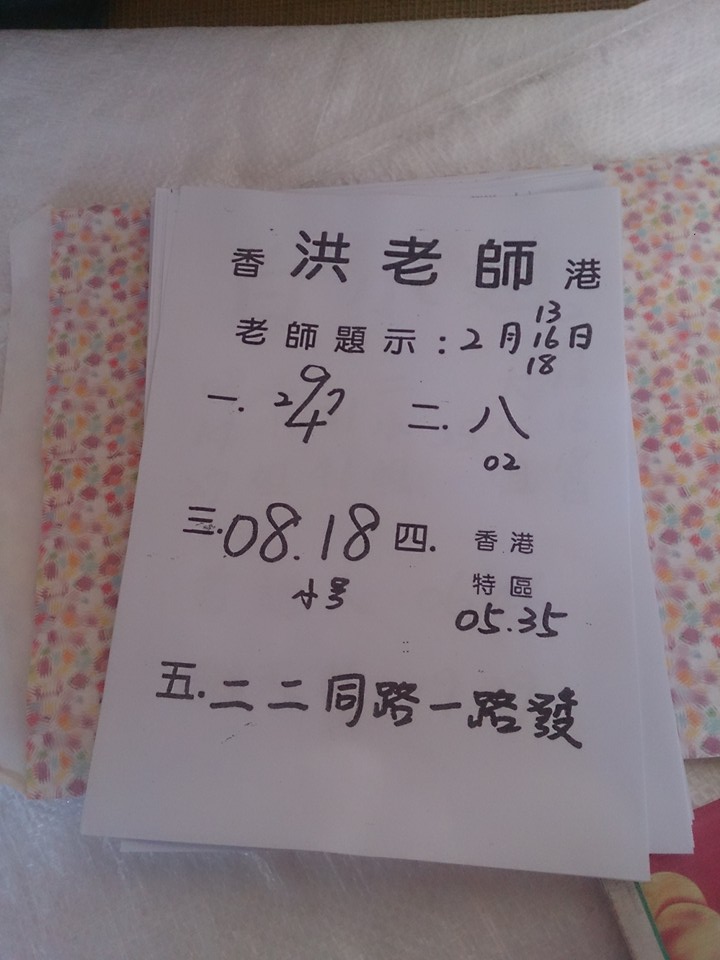 香 洪老師 港
老師題示：2月16日
13
18
一. 9
2 7
4
二. 八
02
三. 08.18
小号
四. 香港
特區
05.35
五. 二二同路一路發